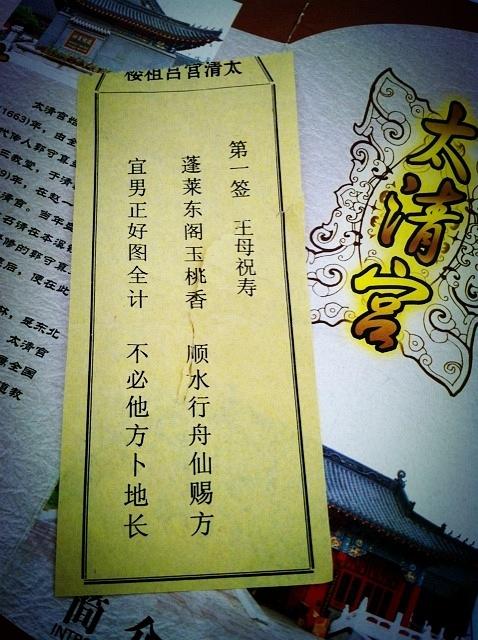 太清宫吕祖楼
第一签 王母祝寿
蓬莱东阁玉桃香 顺水行舟仙赐方
宜男正好图全计 不必他方卜地长
太清宫
太清宫
(1663)年,由全
传人郭守真
三教堂,于清
9)年,在
清宫。当年
石清在本溪
修的郭守真
后,便在此
是东北
太清宫
全国
道教
简介